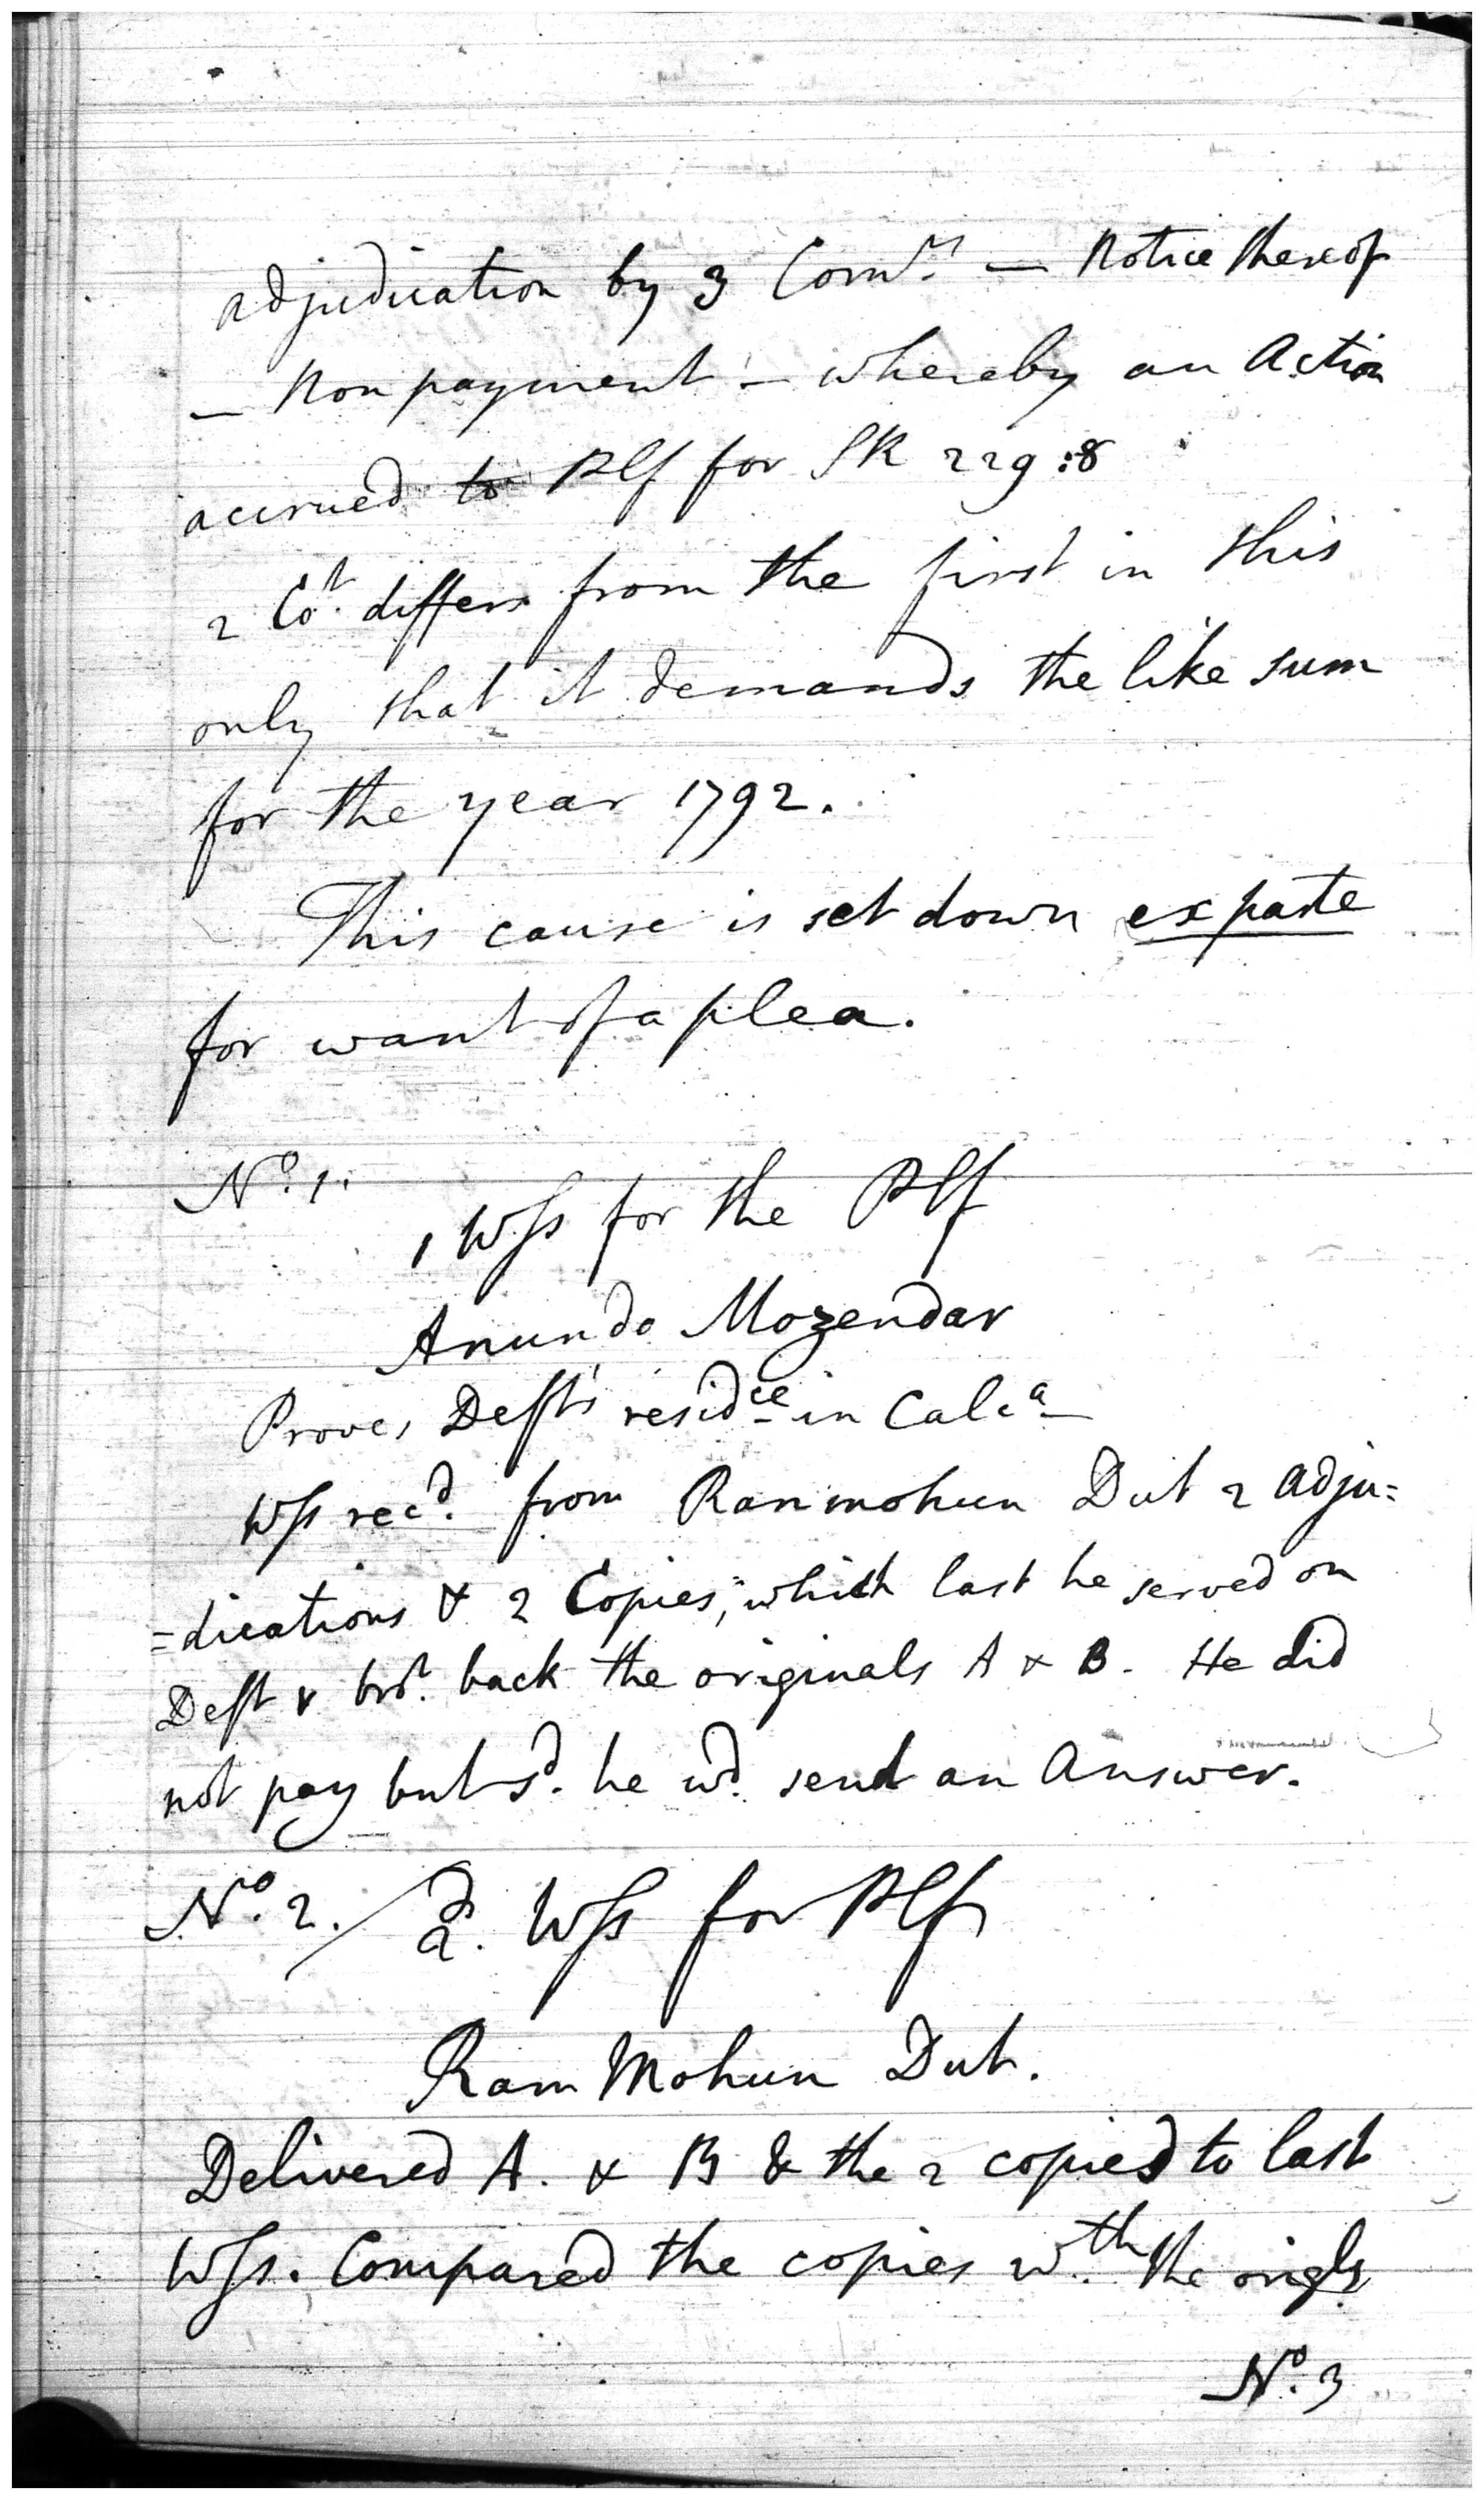 adjudication by 3 Comrs. — Notice thereof
— Non payment — whereby an Action
accrued to Plf for SR 229:8
2 Cot. differs from the first in this
only that it demands the like sum
for the year 1792.
This cause is set down ex parte
for want of a plea.
No. 1.
1 Wss for the Plf
Anundo Mozendar
Proves Deft's residce in Calca—
Wss recd. from Rammohun Dut 2 adju=
=dications & 2 Copies, which last he served on
Deft & brt. back the originals A & B. He did
not pay but sd. he wd. send an Answer.
No. 2. 2d. Wss for Plf
Ram Mohun Dut.
Delivered A. & B & the 2 copies to last
Wss. Compared the copies wth. the origls
No. 3